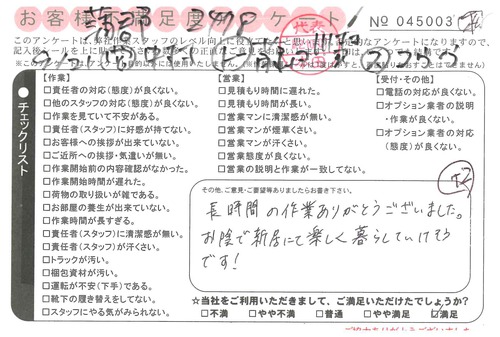 お客様満足度アンケート
№ 045003
このアンケートは、弊社作業スタッフのレベル向上に役立てたいと思います。
【作業】
□責任者の対応(態度)が良くない。
□他のスタッフの対応(態度)が良くない。
□作業を見ていて不安がある。
□責任者(スタッフ)に好感が持てない。
□お客様への挨拶が出来ていない。
□ご近所への挨拶・気遣いが無い。
□作業開始前の内容確認がなかった。
□作業開始時間が遅れた。
□荷物の取り扱いが雑である。
□お部屋の養生が出来ていない。
□作業時間が長すぎる。
□責任者(スタッフ)に清潔感が無い。
□責任者(スタッフ)が汗くさい。
□トラックが汚い。
□梱包資材が汚い。
□運転が不安(下手)である。
□靴下の履き替えをしてない。
□スタッフにやる気がみられない。
【営業】
□見積もり時間に遅れた。
□見積もり時間が長い。
□営業マンに清潔感が無い。
□営業マンが煙草くさい。
□営業マンが汗くさい。
□営業態度が良くない。
□営業の説明と作業が一致してない。
【受付・その他】
□電話の対応が良くない。
□オプション業者の説明
・作業が良くない。
□オプション業者の対応
(態度)が良くない。
チェックリスト
その他、ご意見・ご要望等ありましたらお書き下さい。
長時間の作業ありがとうございました。
お陰で新居にて楽しく暮らしていけそう
です!
☆当社をご利用いただきまして、ご満足いただけたでしょうか?
□不満 □やや不満 □普通 □やや満足 ☑満足